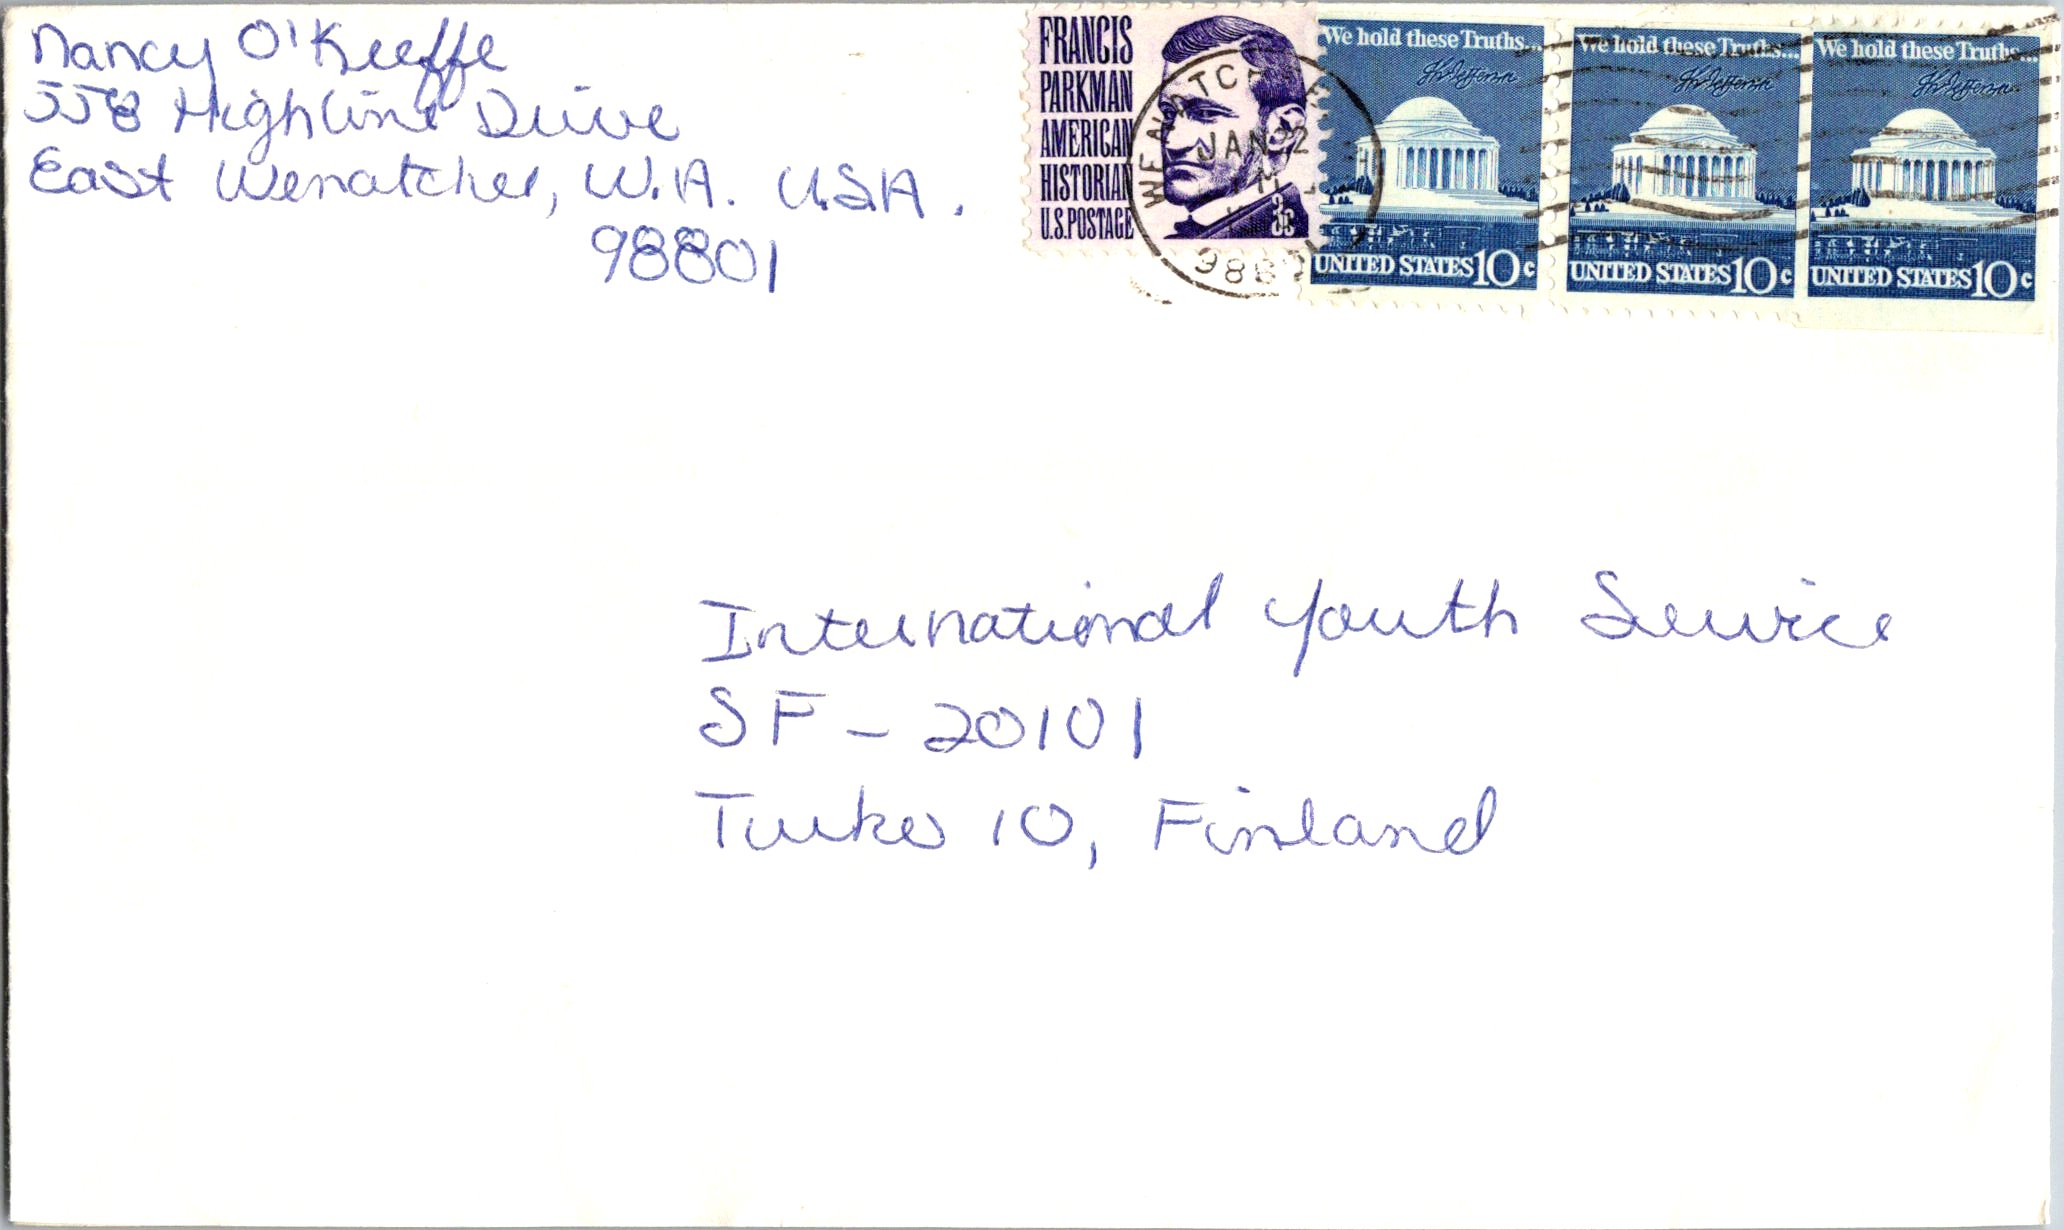 Nancy O'Keeffe
558 Highline Drive
East Wenatchee, W.A. USA.
98801
FRANCIS
PARKMAN
AMERICAN
HISTORIAN
U.S.POSTAGE
3¢
WENATCHEE
JAN 22
We hold these Truths...
Th Jefferson
UNITED STATES 10c
We hold these Truths...
Th Jefferson
UNITED STATES 10c
We hold these Truths...
Th Jefferson
UNITED STATES 10c
International Youth Service
SF - 20101
Turko 10, Finland